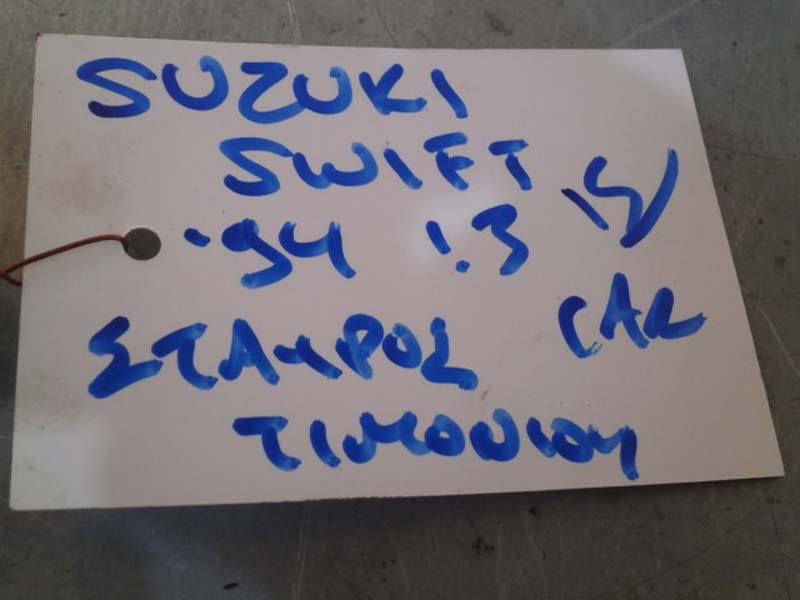 SUZUKI
SWIFT
'94 1.3 15/
CAR
ΣΤΑΥΡΟΣ
ΤΙΜΟΝΙΟΥ